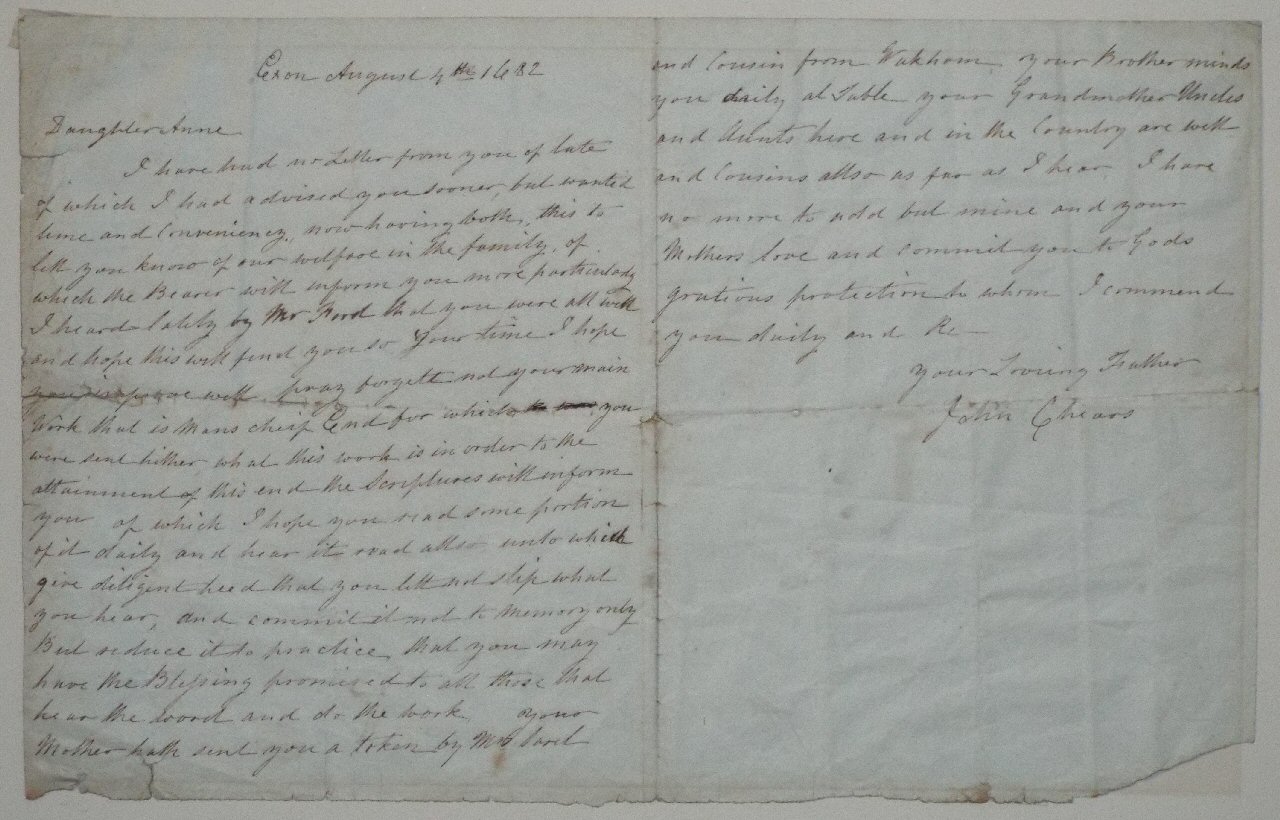 Exon August 4th 1682
Daughter Anne
I have had no Letter from you of late
of which I had advised you sooner, but wanted
time and Conveniency, now having both, this to
lett you know of our wellfare in the family, of
which the Bearer will inform you more particularly
I heard lately by Mr Ford that you were all well
and hope this will find you so Your time I hope
you improve well. pray forgett not your main
Work that is Mans cheif End for which you
were sent hither what this work is in order to the
attainment of this end the Scriptures will inform
you of which I hope you read some portion
of it daily and hear it read allso unto which
give diligent heed that you lett not slip what
you hear, and commit it not to Memory only
But reduce it to practice, that you may
have the Blessing promised to all those that
hear the word and do the work. your
Mother hath sent you a token by Mrs
and Cousin from Wakham, your Brother minds
you daily at Table your Grandmother Uncles
and Aunts here and in the Country are well
and Cousins allso as far as I hear, I have
no more to add but mine and your
Mothers love and commit you to Gods
gratious protection to whom I commend
you daily and Re
Your Loving Father
John Chears